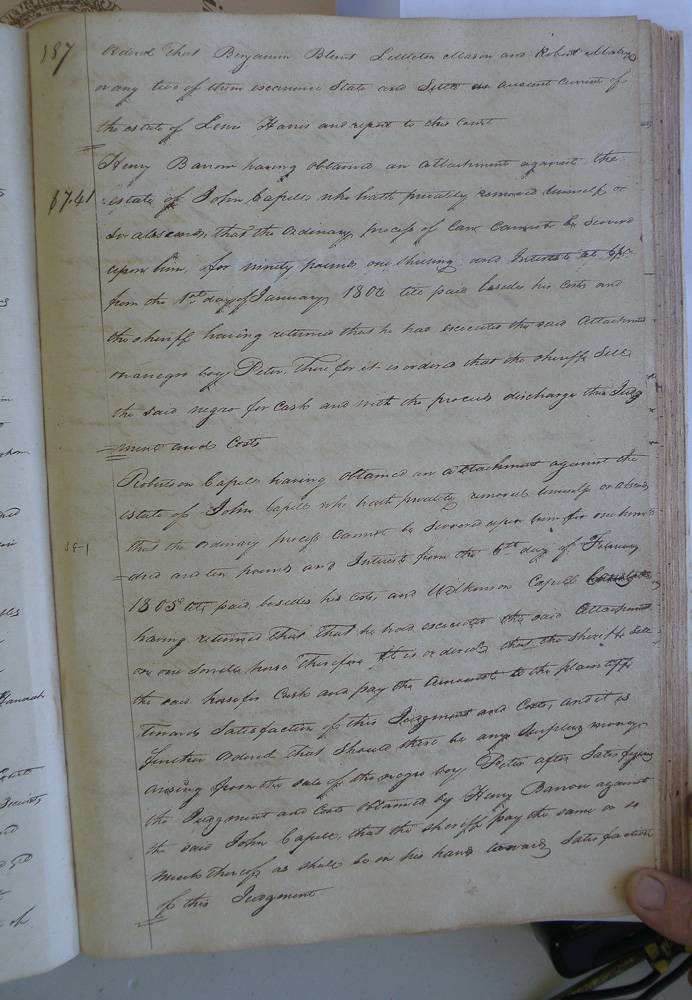 187
Ordered that Benjamin Blunt Littleton Mason and Robert
or any two of them examine State and Settle an account current of
the estate of Lewis Harris and report to this Court
Henry Barrow having obtained an attachment against the
87.41
estate of John Capell who hath privately removed himself or
so absconds, that the ordinary process of law cannot be served
upon him, for ninety pounds one shilling and Interest at
from the 1st day of January 1806 till paid besides his costs and
the sheriff having returned that he has executed the said attachment
on a negro boy Peter. Therefore it is ordered that the sheriff Sell
the said negro for Cash and with the proceeds discharge this Judg
ment and Costs
Robertson Capell having obtained an attachment against the
estate of John Capell who hath privately removed himself or absconds
that the ordinary process cannot be served upon him for one hun
=dred and ten pounds and Interest from the 6th day of February
1805 till paid, besides his costs, and Wilkinson Capell
having returned that that he had executed the said attachment
on one horse Therefore it is ordered that the sheriff Sell
the said horse for Cash and pay the amount to the plaintiff
Towards Satisfaction of this Judgment and Costs, and it is
further Ordered that should there be any Surplus money
arising from the sale of the negro boy Peter after Satisfying
the Judgment and Costs obtained by Henry Barrow against
the said John Capell, that the sheriff pay the same or so
much thereof as shall be in his hands towards Satisfaction
of this Judgment